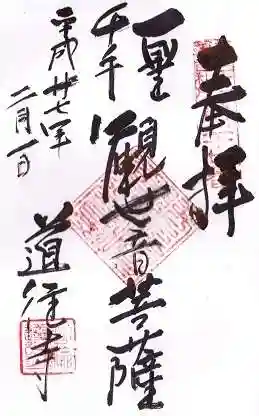 奉拝
聖
千手
觀世音菩薩
平成廿七年
二月一日
道往寺